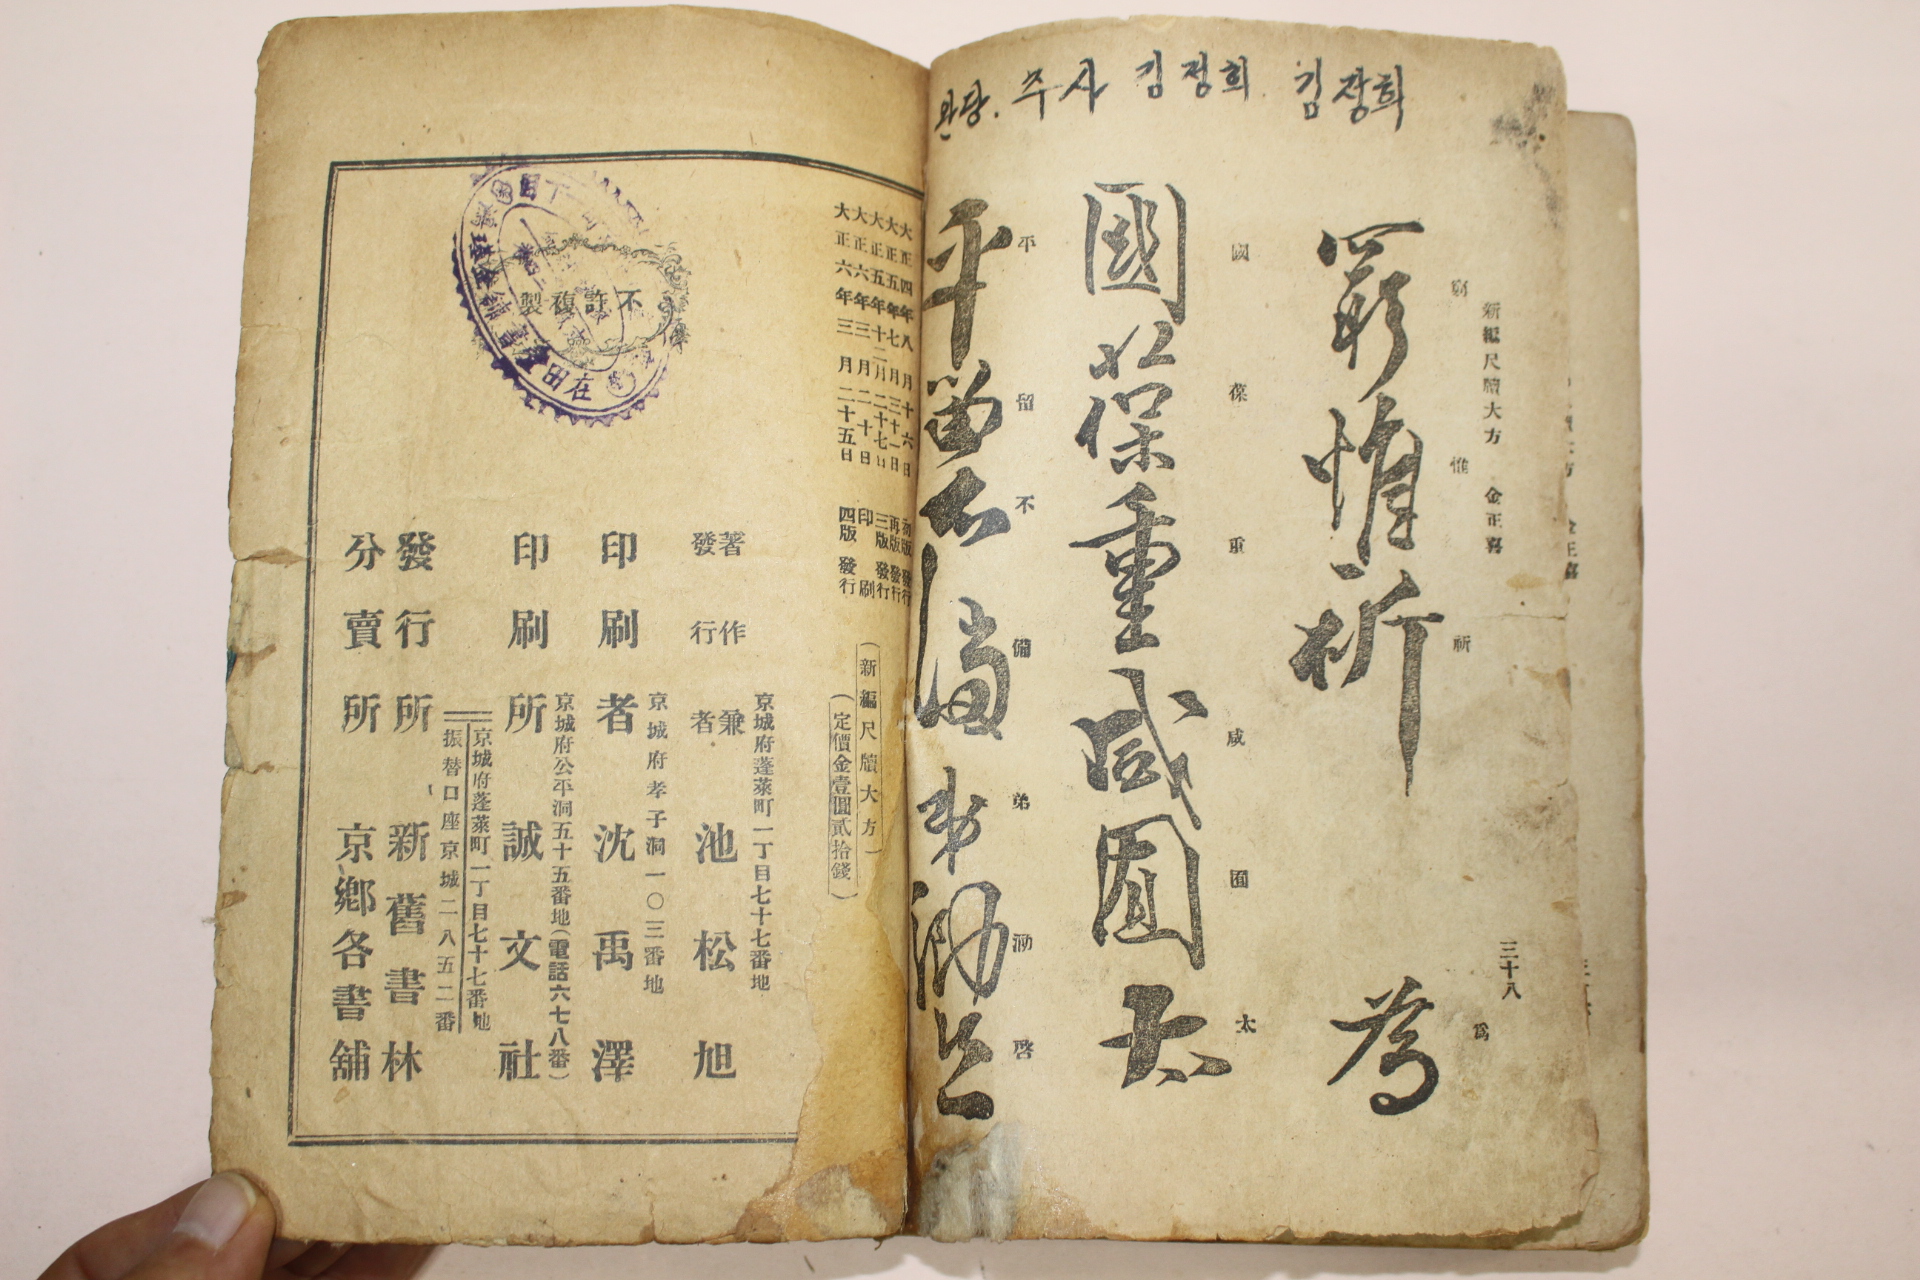 완당. 추사 김정희 김장희
新編尺牘大方 金正喜
三十八
窮惟祈 為
窮惟祈 爲
國葆重咸囿太
國葆重咸囿太
平留不備弟泐啓
平留不備弟泐啓
大正四年八月十六日 初版發行
大正五年七月三十一日 再版發行
大正五年十二月二十七日 三版發行
大正六年三月二十日 印刷
大正六年三月二十五日 四版發行
(新編尺牘大方)
(定價金壹圓貳拾錢)
不許複製
京城府蓬萊町一丁目七十七番地
著作兼
發行者 池松旭
京城府孝子洞一〇三番地
印刷者 沈禹澤
京城府公平洞五十五番地(電話六七八番)
印刷所 誠文社
京城府蓬萊町一丁目七十七番地
振替口座京城二八五二番
發行所 新舊書林
分賣所 京鄉各書舖